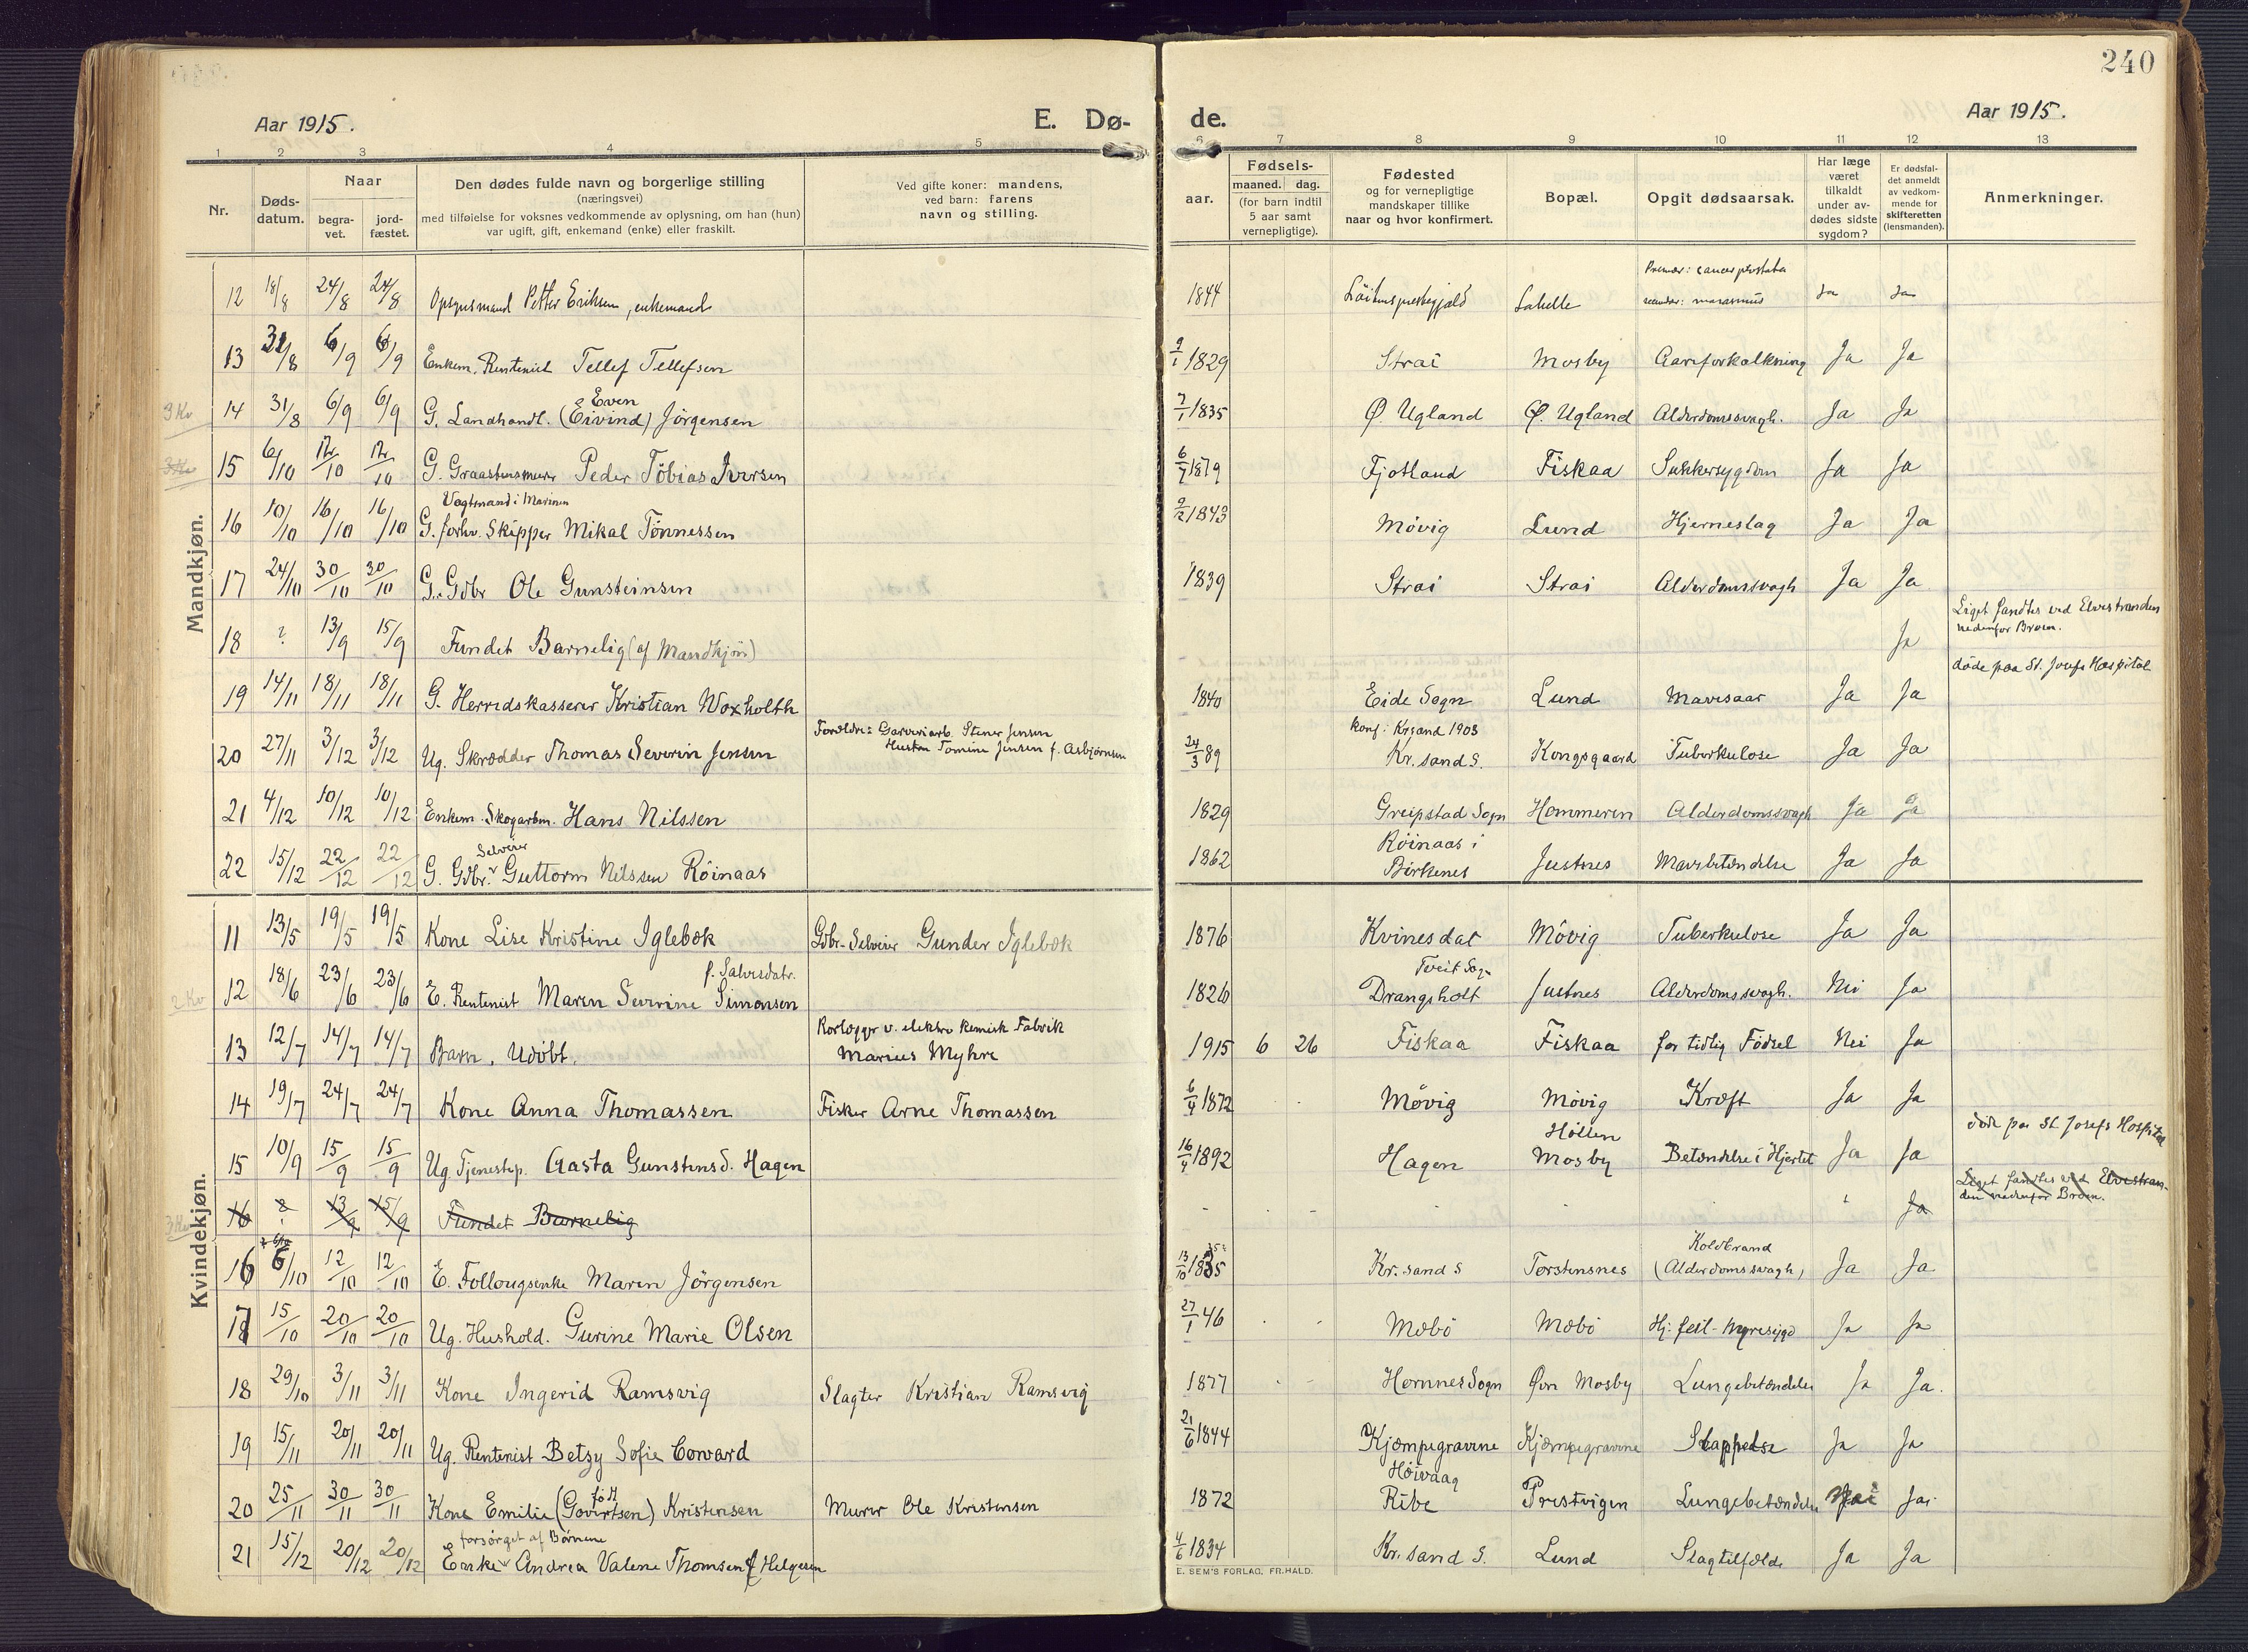 240
Aar 1915. E. Dø- de. Aar 1915.
1 2 3 4 5 6 7 8 9 10 11 12 13
Nr.
Døds-
datum.
Naar
begra-
vet.
jord-
fæstet.
Den dødes fulde navn og borgerlige stilling
(næringsvei)
med tilføielse for voksnes vedkommende av oplysning, om han (hun)
var ugift, gift, enkemand (enke) eller fraskilt.
Ved gifte koner: mandens,
ved barn: farens
navn og stilling.
Fødsels-
aar.
maaned. dag.
(for barn indtil
5 aar samt
vernepligtige).
Fødested
og for vernepligtige
mandskaper tillike
naar og hvor konfirmert.
Bopæl.
Opgit dødsaarsak.
Har læge
været
tilkaldt
under av-
dødes sidste
sygdom?
Er dødsfal-
det anmeldt
av vedkom-
mende for
skifteretten
(lensmanden).
Anmerkninger.
Mandkjøn.
12 18/8 24/8 24/8 Petter Eriksen, enkemand 1844 Ja Ja
13 31/8 6/9 6/9 Enkem. Rentenist Tellef Tellefsen 9/1 1829 Strai Mosby Aareforkalkning Ja Ja
3 Kv 14 31/8 6/9 6/9 G. Landhandl. (Eivind) Jörgensen 7/1 1835 Ø. Ugland Ø. Ugland Alderdomssvagh. Ja Ja
Even
15 6/10 12/10 12/10 G. Graastensmurer Peder Tobias Iversen 6/7 1879 Fjotland Fiskaa Sukkersygdom Ja Ja
Vagtmand i Marinen
16 10/10 16/10 16/10 G. forhv. Skipper Mikal Tönnessen 9/12 1843 Mövig Lund Hjerneslag Ja Ja
17 24/10 30/10 30/10 G. Gdbr Ole Gunsteinsen 1839 Strai Strai Alderdomssvagh Ja Ja
18 ? 13/9 15/9 Fundet Barnelig (af Mandkjön) Ja Liget fandtes ved Elvestranden
nedenfor Broen.
19 14/11 18/11 18/11 G. Herredskasserer Kristian Woxholth 1840 Eide Sogn Lund Mavesaar Ja Ja döde paa St. Josefs Hospital
20 27/11 3/12 3/12 Ug. Skrædder Thomas Severin Jensen Forældre: Garveriarb. Stener Jensen
Hustru Tomine Jensen f. Asbjørnsen
24/3 89 konf. i Krsand 1903
Kr. sand S. Kongsgaard Tuberkulose Ja Ja
21 4/12 10/12 10/12 Enkem. Skogarbm. Hans Nilssen 1829 Greipstad Sogn Hommeren Alderdomssvagh Ja Ja
Selveier
22 15/12 22/12 22/12 G. Gdbr. Guttorm Nilssen Röinaas 1862 Röinaas i
Birkenes Justnes Mavebetændelse Ja Ja
Kvindekjøn.
11 13/5 19/5 19/5 Kone Lise Kristine Iglebæk Gdbr-Selveier Gunder Iglebæk 1876 Kvinesdal Mövig Tuberkulose Ja Ja
f. Salvesdatr.
2 Kv 12 18/6 23/6 23/6 E. Rentenist Maren Severine Simonsen 1826 Tveit Sogn
Drangsholt Justnes Alderdomssvagh. Nei Ja
13 12/7 14/7 14/7 Barn. Udöbt. Rorlægger v. elektro kemisk Fabrik
Marius Myhre 1915 6 26 Fiskaa Fiskaa for tidlig Födsel Nei Ja
14 19/7 24/7 24/7 Kone Anna Thomassen Fisker Arne Thomassen 6/4 1872 Mövig Mövig Kræft Ja Ja
15 10/9 15/9 15/9 Ug. Tjenestep. Aasta Gunstensd. Hagen 16/4 1892 Hagen Höllen
Mosby Betændelse i Hjertet Ja Ja döde paa St. Josefs Hospital
16 ? 13/9 15/9 Fundet Barnelig Ja Liget fandtes ved Elvestran-
den nedenfor Broen.
16 6/10 12/10 12/10 E. Maren Jörgensen 13/10 1835 Kr. sand S Torstensnes Koldbrand
(Alderdomssvagh) Ja Ja
17 15/10 20/10 20/10 Ug. Hushold. Gurine Marie Olsen 27/1 46 Mæbö Mæbö Hj. feil - Nyresygd Ja Ja
18 29/10 3/11 3/11 Kone Ingerid Ramsvig Slagter Kristian Ramsvig 1877 Hornnes Sogn Øvre Mosby Lungebetændelse Ja Ja.
19 15/11 20/11 20/11 Ug. Rentenist Betzy Sofie Coward 21/6 1844 Kjæmpegravene Kjæmpegravene Slappelse Ja Ja
20 25/11 30/11 30/11 Kone Emilie (født Govertsen) Kristensen Murer Ole Kristensen 1872 Höivaag
Ribe Prestvigen Lungebetændelse Ja
forsörget af Börnene
21 15/12 20/12 20/12 Enke Andrea Valene Thomsen f. Helgesen 4/6 1834 Kr. sand S. Lund Slagtilfælde Ja Ja
E. SEM'S FORLAG, FR.HALD.